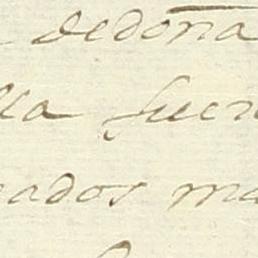 dedoña
lla fuer
cados ma